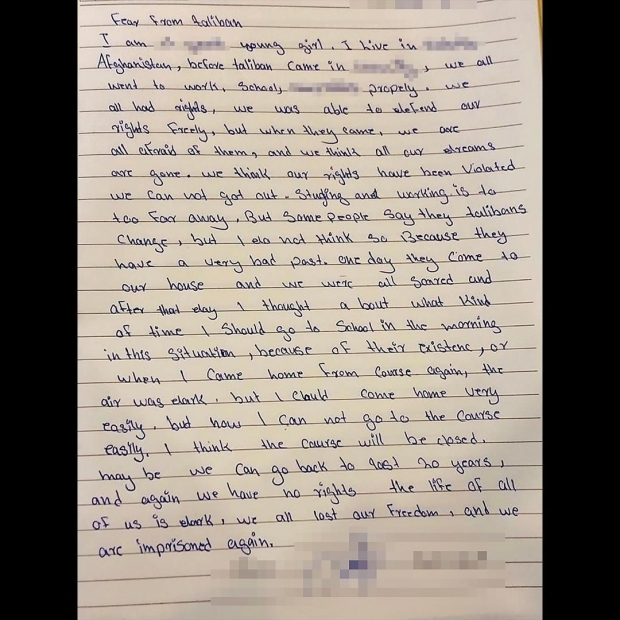 Fear From taliban
I am young girl. I Live in
Afghanistan, before taliban came in , we all
went to work, School, propely. we
all had rights, we was able to defend our
rights Freely, but when they came, we are
all afraid of them, and we think all our dreams
are gone. we think our rights have been Violated
we can not got out. Studing and working is to
too Far away, But Some People Say they talibans
Change, but I do not think So Because they
have a very bad Past. one day they Come to
our house and we were all Scared and
after that day I thought a bout what Kind
of time I Should go to School in the morning
in this Situation, because of their existenc, or
when I Came home From course again, the
air was dark. but I Could come home very
easily, but now I can not go to the Course
easily. I think the course will be closed.
may be we can go back to last 20 years,
and again we have no rights the life of all
of us is dark, we all lost our Freedom, and we
are imprisoned again.